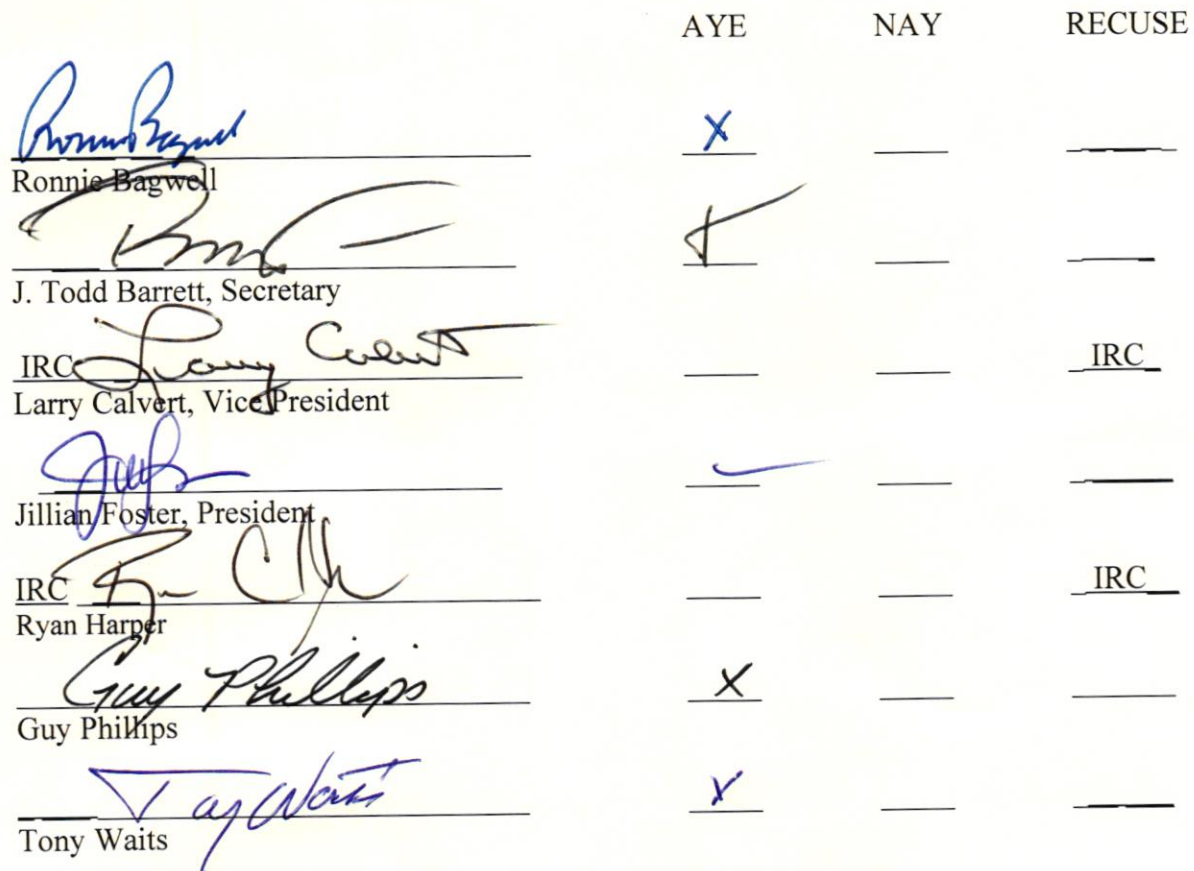 AYE NAY RECUSE
Ronnie Bagwell X
Ronnie Bagwell
J. Todd Barrett, Secretary
IRC Larry Calvert IRC
Larry Calvert, Vice President
Jillian Foster, President
IRC IRC
Ryan Harper
Guy Phillips X
Guy Phillips
Tony Waits X
Tony Waits